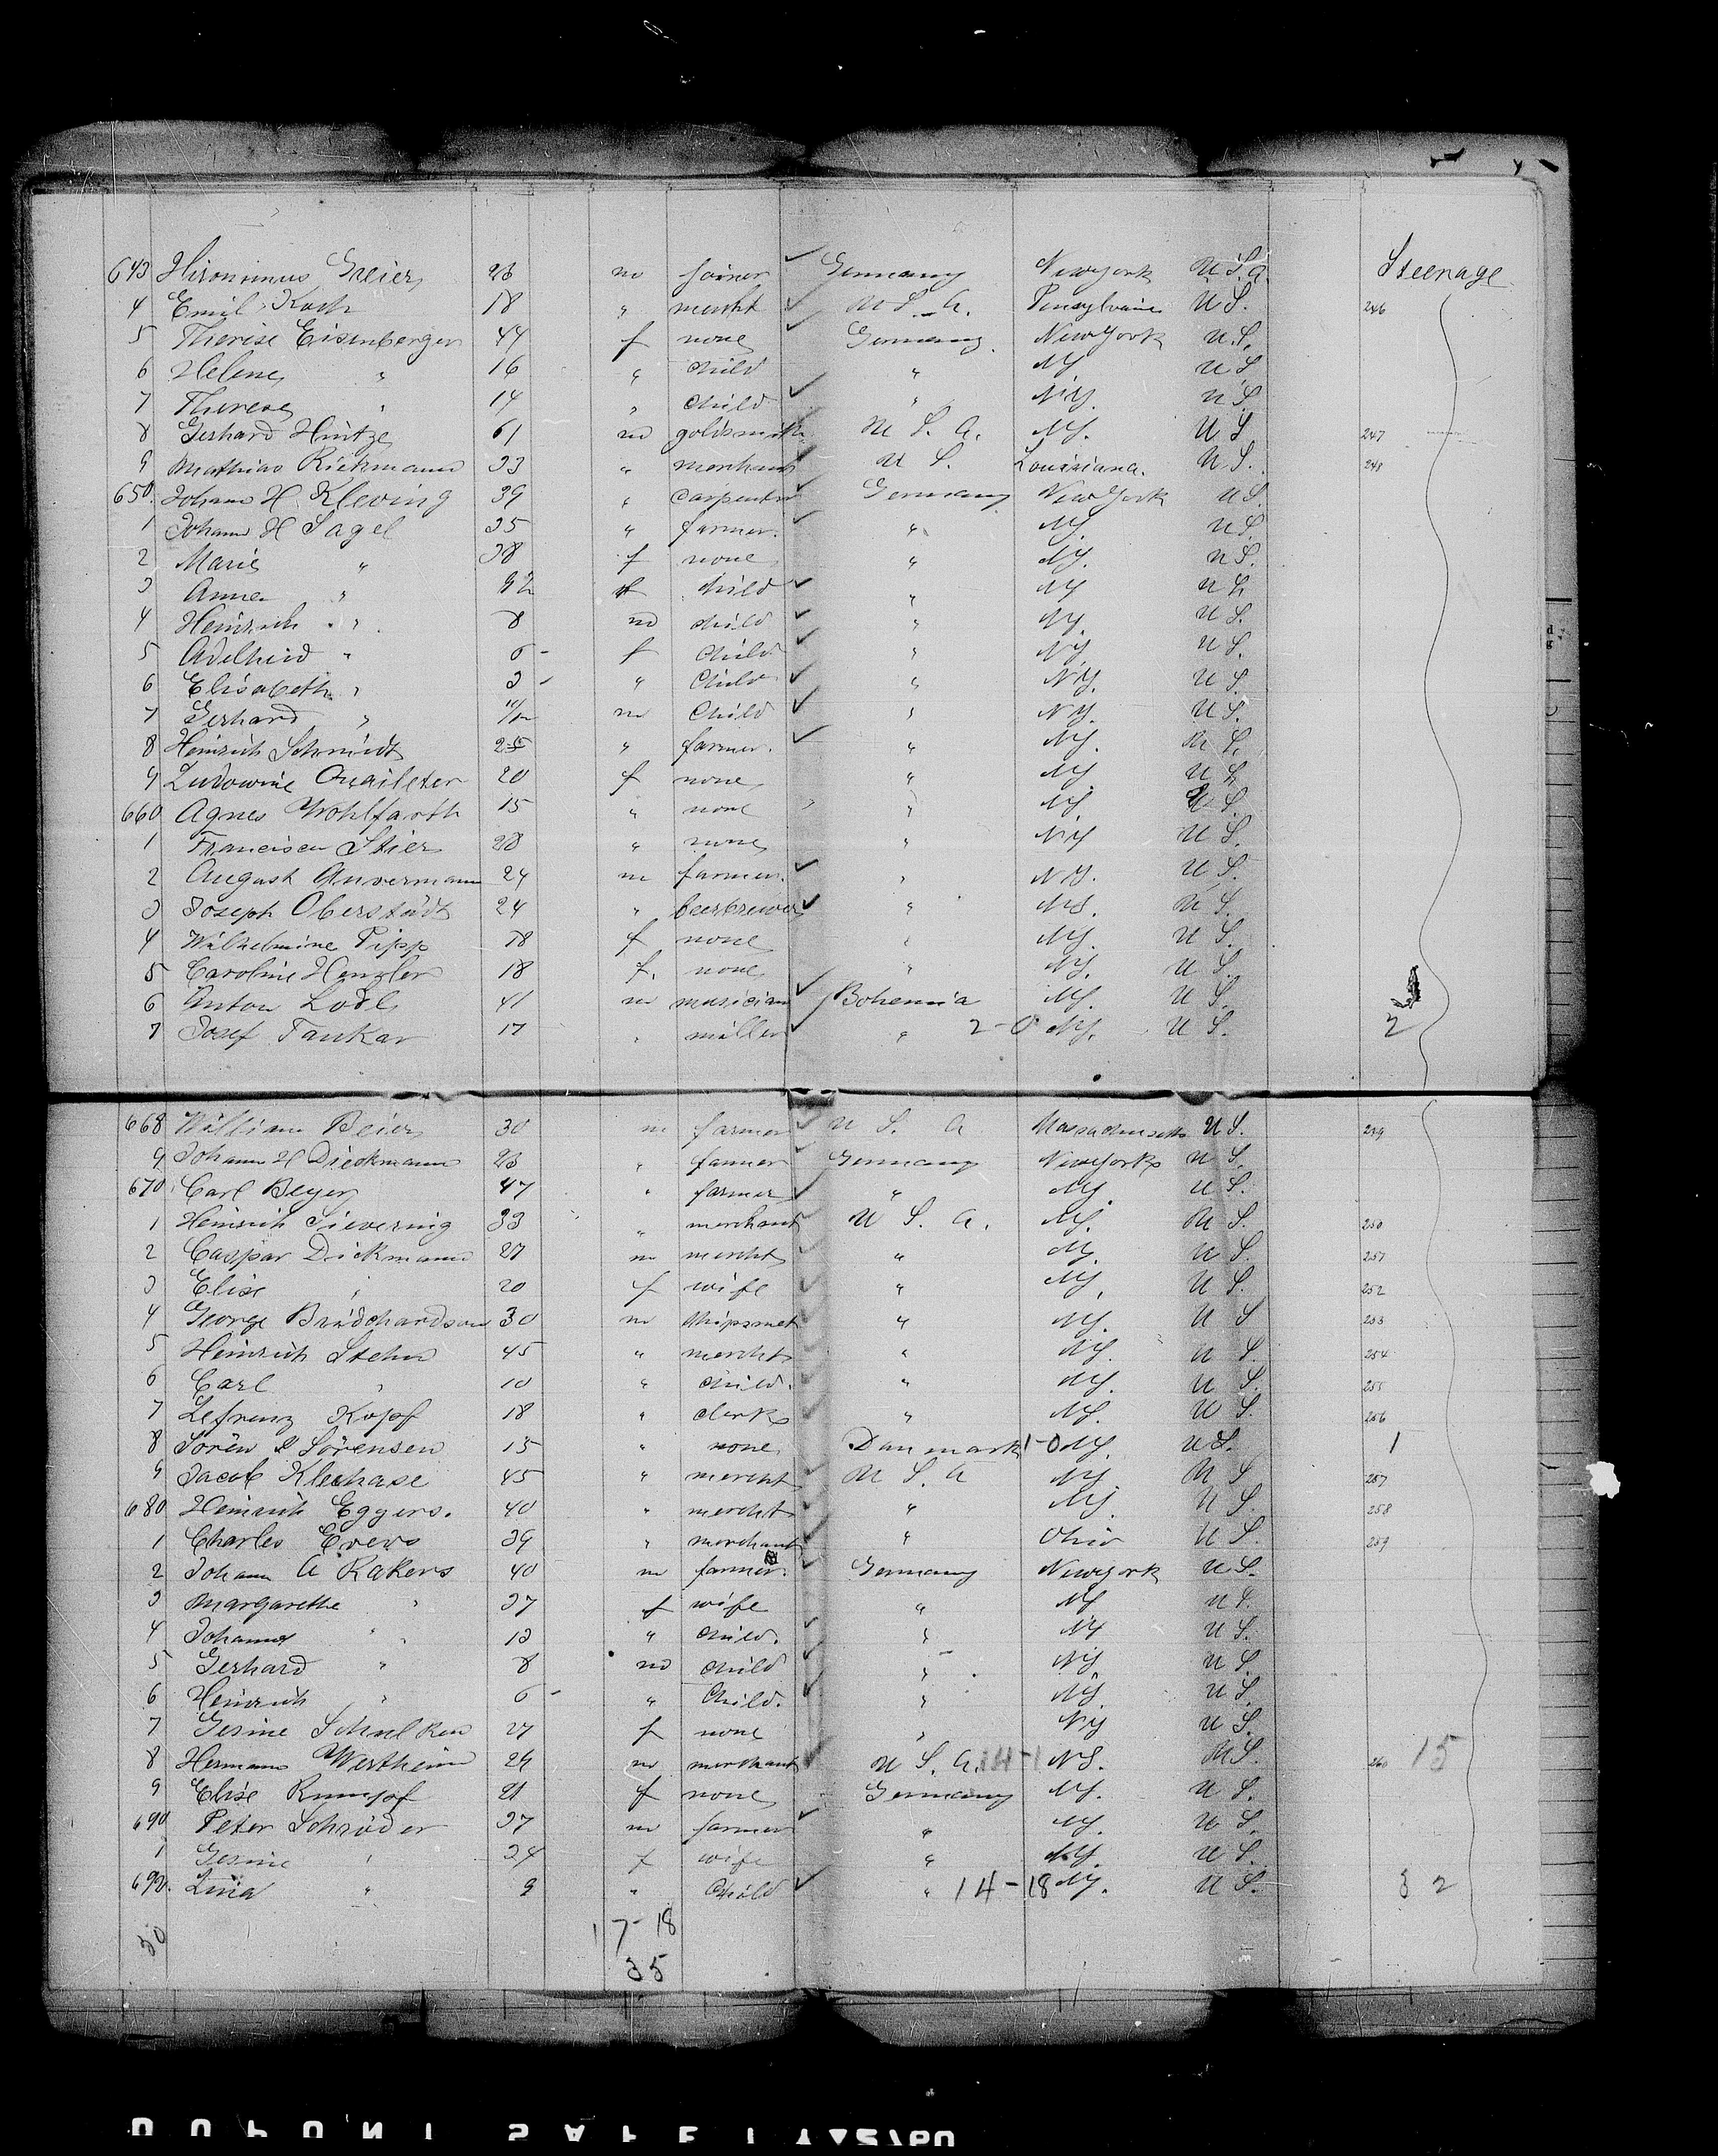 643 Hironimus Greier 23 m farmer Germany New York U S a. Steerage
4 Emil Koch 18 " mercht U S. A. Pensylvania U S. 246
5 Therese Eisenberger 44 f none Germany New York U.S.
6 Helene " 16 " child " NY U S
7 Therese " 14 " child " NY. U S
8 Gerhard Hintze 61 m goldsmith U S. A. NY. U S 247
9 Mathias Rickmann 33 " merchant U S. Louisiana. U S. 248
650. Johann H. Kleving 39 " carpenter Germany New York U S.
1 Johann H Sagel 35 " farmer. " NY. U S.
2 Marie " 38 f none " NY. U S.
3 Anna " 9½ f child " NY U S
4 Heinrich " 8 m child " NY. U S.
5 Adelheid " 6 - f Child " NY U S.
6 Elisabeth " 3 - " Child " NY. U S.
7 Gerhard " 11/12 m Child " NY. U S.
8 Heinrich Schmidt 25 " farmer. " NY. U S.
9 Ludowine 20 f none " NY U S
660 Agnes Wohlfarth 15 " none " NY U S
1 Francisca Stier 28 " none " NY U S.
2 August Anvermann 24 m farmer. " NY. U S.
3 Joseph Oberstädt 24 " beerbrewer " NY. U S.
4 Wilhelmine Pipp 18 f none " NY. U S.
5 Caroline Henzler 18 f. none " NY. U S.
6 Anton Lodl 41 m musician Bohemia NY. U S.
7 Josef Tankar 17 " miller " 2-0 NY. U S. 2
668 William Beier 30 m farmer U S. A Massachusetts U S. 249
9 Johann H Dieckmann 23 " farmer Germany New York U S.
670 Carl Beyer 47 " farmer " NY. U S.
1 Heinrich Sievering 33 " merchant U S. A. NY. U S. 250
2 Caspar Dickmann 27 m mercht " NY U S. 251
3 Elise " 20 f wife " NY. U S. 252
4 George 30 m " NY. U S 253
5 Heinrich Stehn 45 " mercht " NY. U S. 254
6 Carl " 10 " child. " NY. U S. 255
7 Kopf 18 " clerk " NY. U S. 256
8 Sören P Sörensen 15 " none Danmark 1-0 NY. U S. 1
9 Jacob Kleehase 45 " mercht U S A NY U S 257
680 Heinrich Eggers. 40 " mercht " NY. U S 258
1 Charles Evers 39 " merchant " Ohio U S. 259
2 Johann A Rakers 40 m farmer. Germany New York U S.
3 Margarethe " 37 f wife " NY U S.
4 Johanna " 13 " child. " NY U S.
5 Gerhard " 8 m child " NY U S.
6 Heinrich " 6 - " Child. " NY U S.
7 Gesine Schulken 27 f none " NY U S.
8 Hermann Wertheim 24 m merchant U S. A. 14-1 NY. U S. 260 15
9 Elise Rumpf 21 f none Germany NY. U S.
690 Peter Schröder 37 m farmer " NY. U S.
1 Gesine " 24 f wife " NY. U S.
692. Lina " 9 " Child " 14-18 NY. U S. 32
50 17-18
35